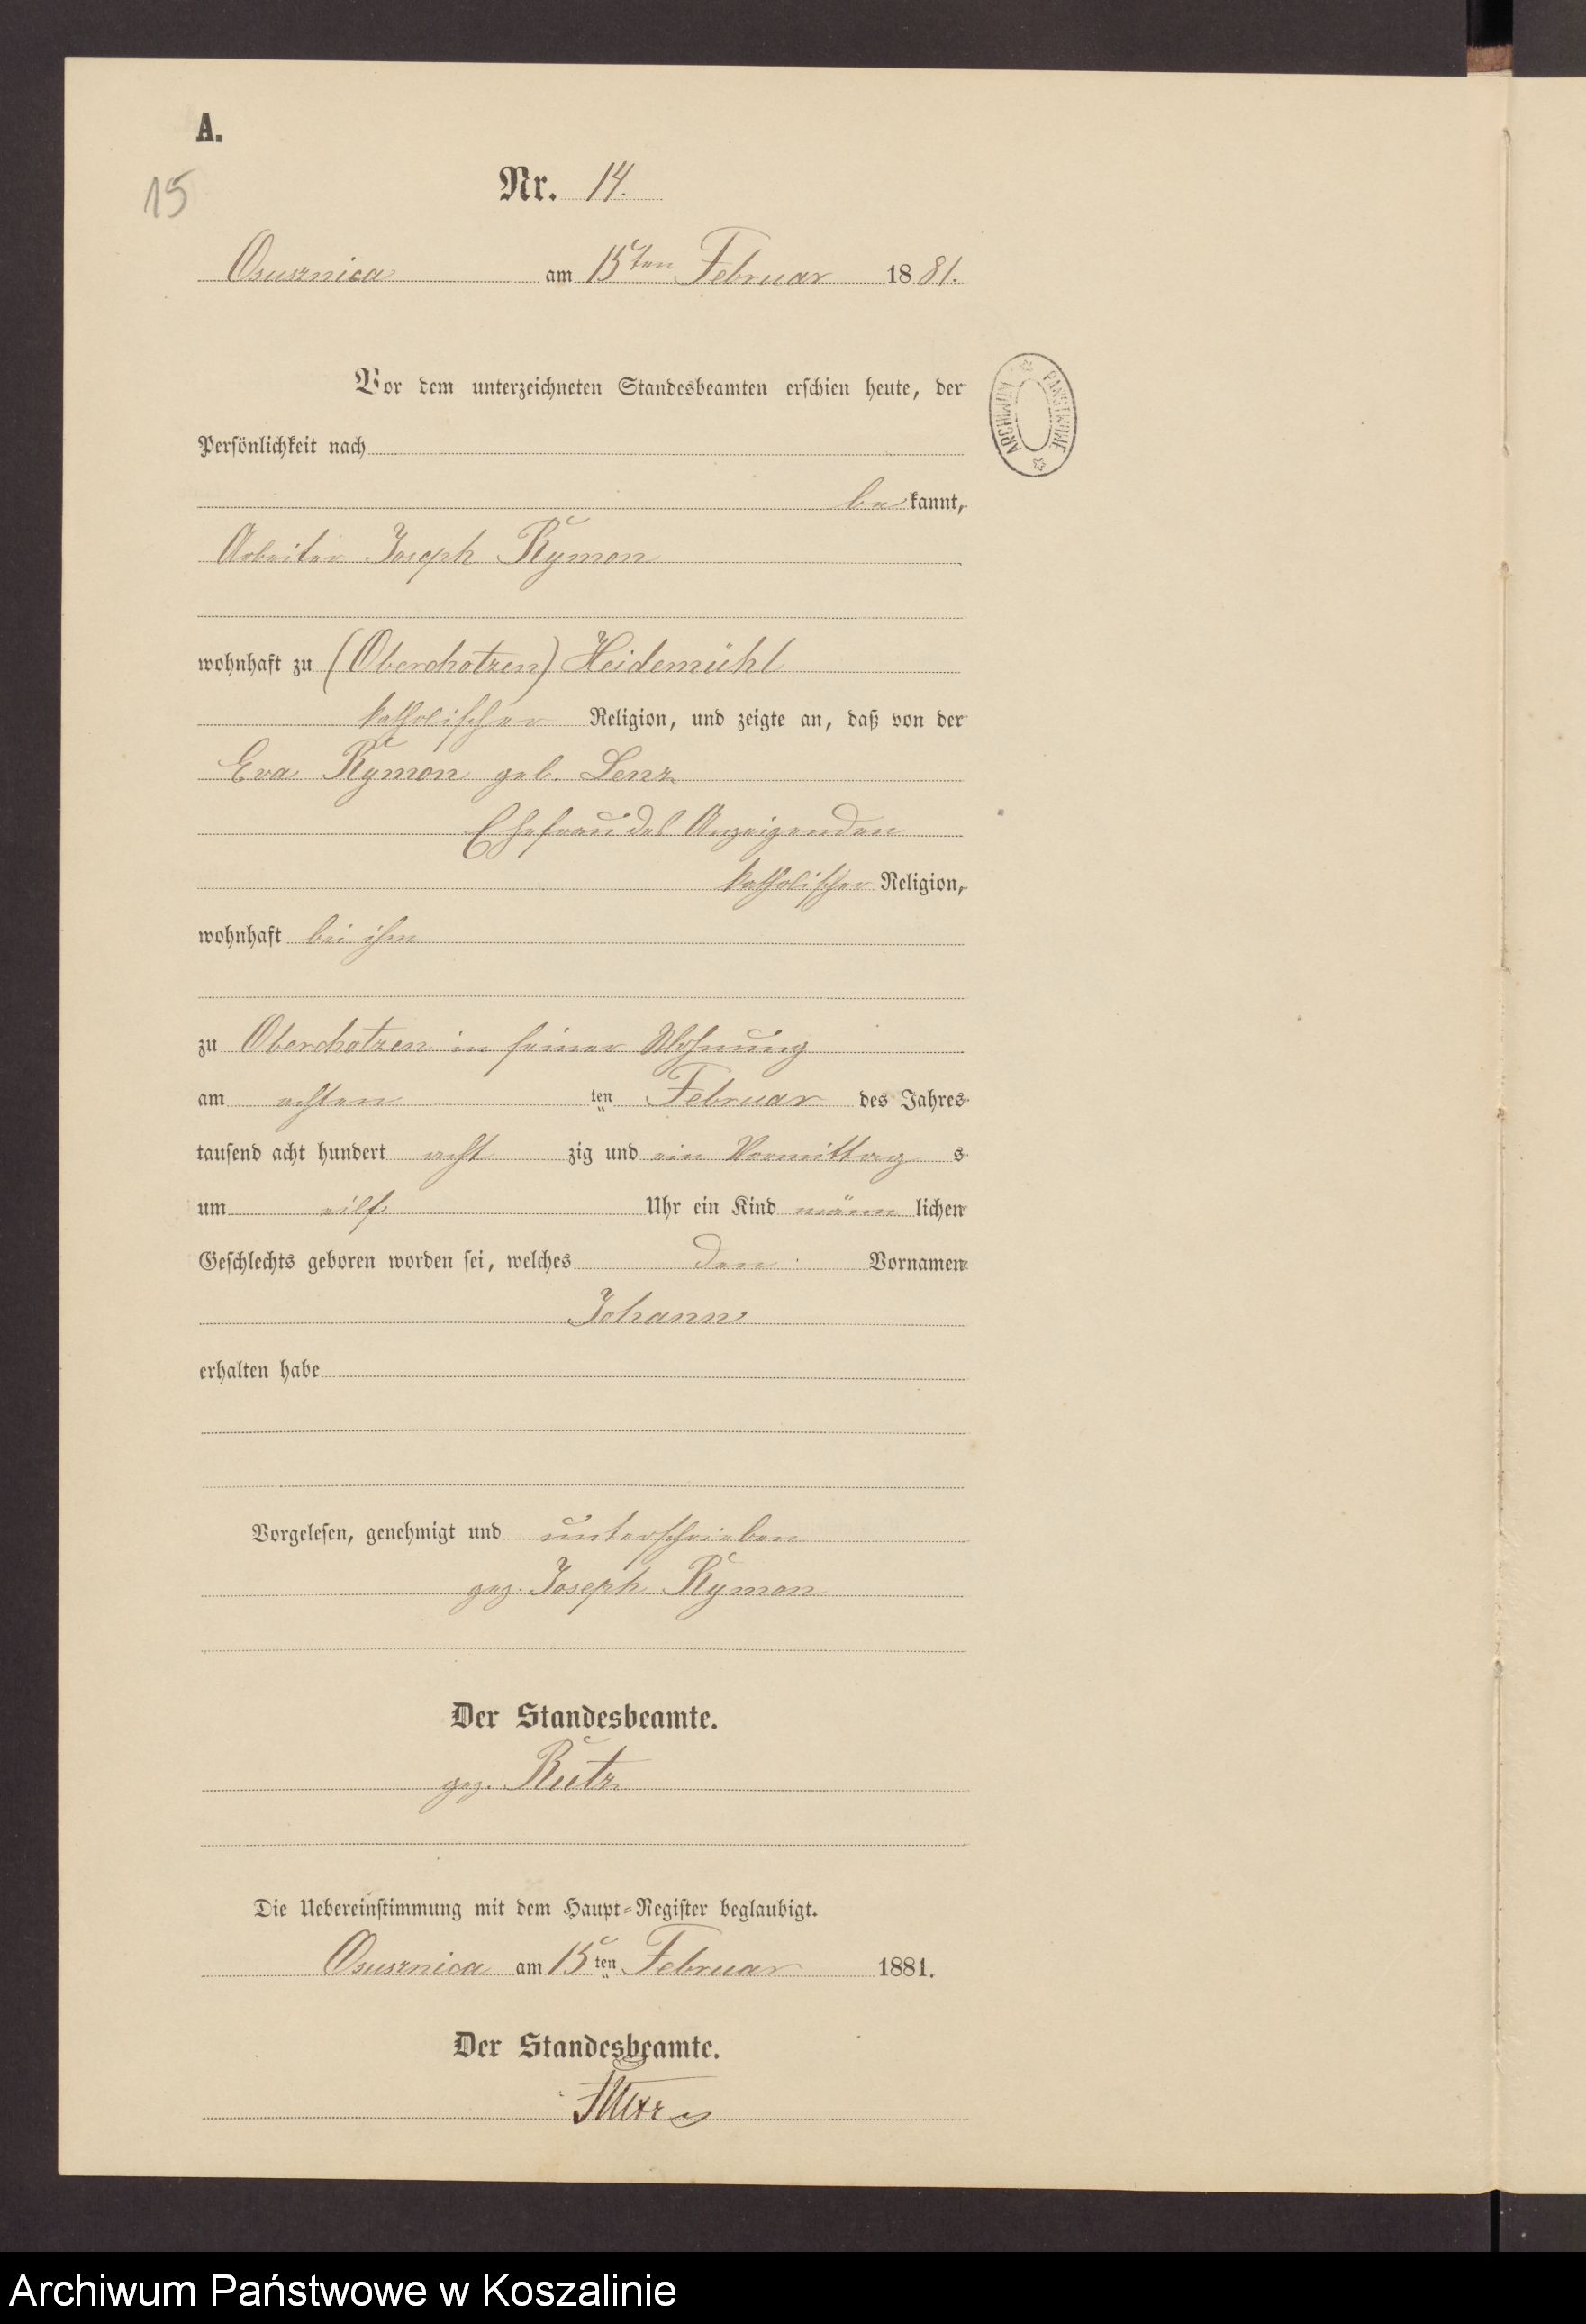 A.
15
Nr. 14.
Osusznica am 15ten Februar 1881.
Vor dem unterzeichneten Standesbeamten erschien heute, der
Persönlichkeit nach
bekannt,
Arbeiter Joseph Rymon
wohnhaft zu (Oberchotzen) Heidemühl
katholischer Religion, und zeigte an, daß von der
Eva Rymon geb. Lenz
Ehefrau des Anzeigenden
katholischer Religion,
wohnhaft bei ihm
zu Oberchotzen in seiner Wohnung
am achten ten Februar des Jahres
tausend acht hundert achtzig und ein Vormittags
um eilf Uhr ein Kind männlichen
Geschlechts geboren worden sei, welches den Vornamen
Johann
erhalten habe
Vorgelesen, genehmigt und unterschrieben
gez. Joseph Rymon
Der Standesbeamte.
gez. Rutz
Die Uebereinstimmung mit dem Haupt-Register beglaubigt.
Osusznica am 15ten Februar 1881.
Der Standesbeamte.
ARCHIWUM PAŃSTWOWE
Archiwum Państwowe w Koszalinie